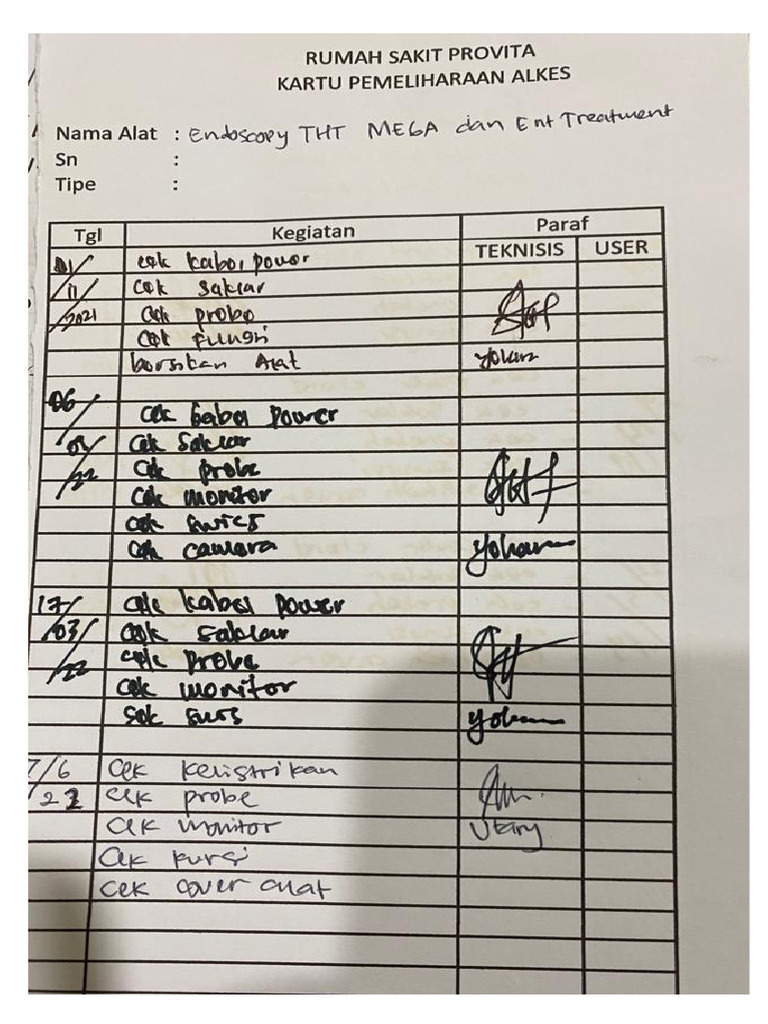 RUMAH SAKIT PROVITA
KARTU PEMELIHARAAN ALKES
Nama Alat : Endoscopy THT MEGA dan Ent Treatment
Sn :
Tipe :
Tgl Kegiatan Paraf
TEKNISIS USER
01/ cek kabel power
11/ cek saklar
/2021 cek probe
cek fungsi
bersihkan Alat Yohan
06/
cek kabel power
03/ cek saklar
/22 cek probe
cek monitor
cek
cek camera Yohan
17/ cek kabel power
/03/ cek saklar
/22 cek probe
cek monitor
cek Yohan
7/6 cek kelistrikan
/22 cek probe
cek monitor Utary
cek kursi
cek cover alat